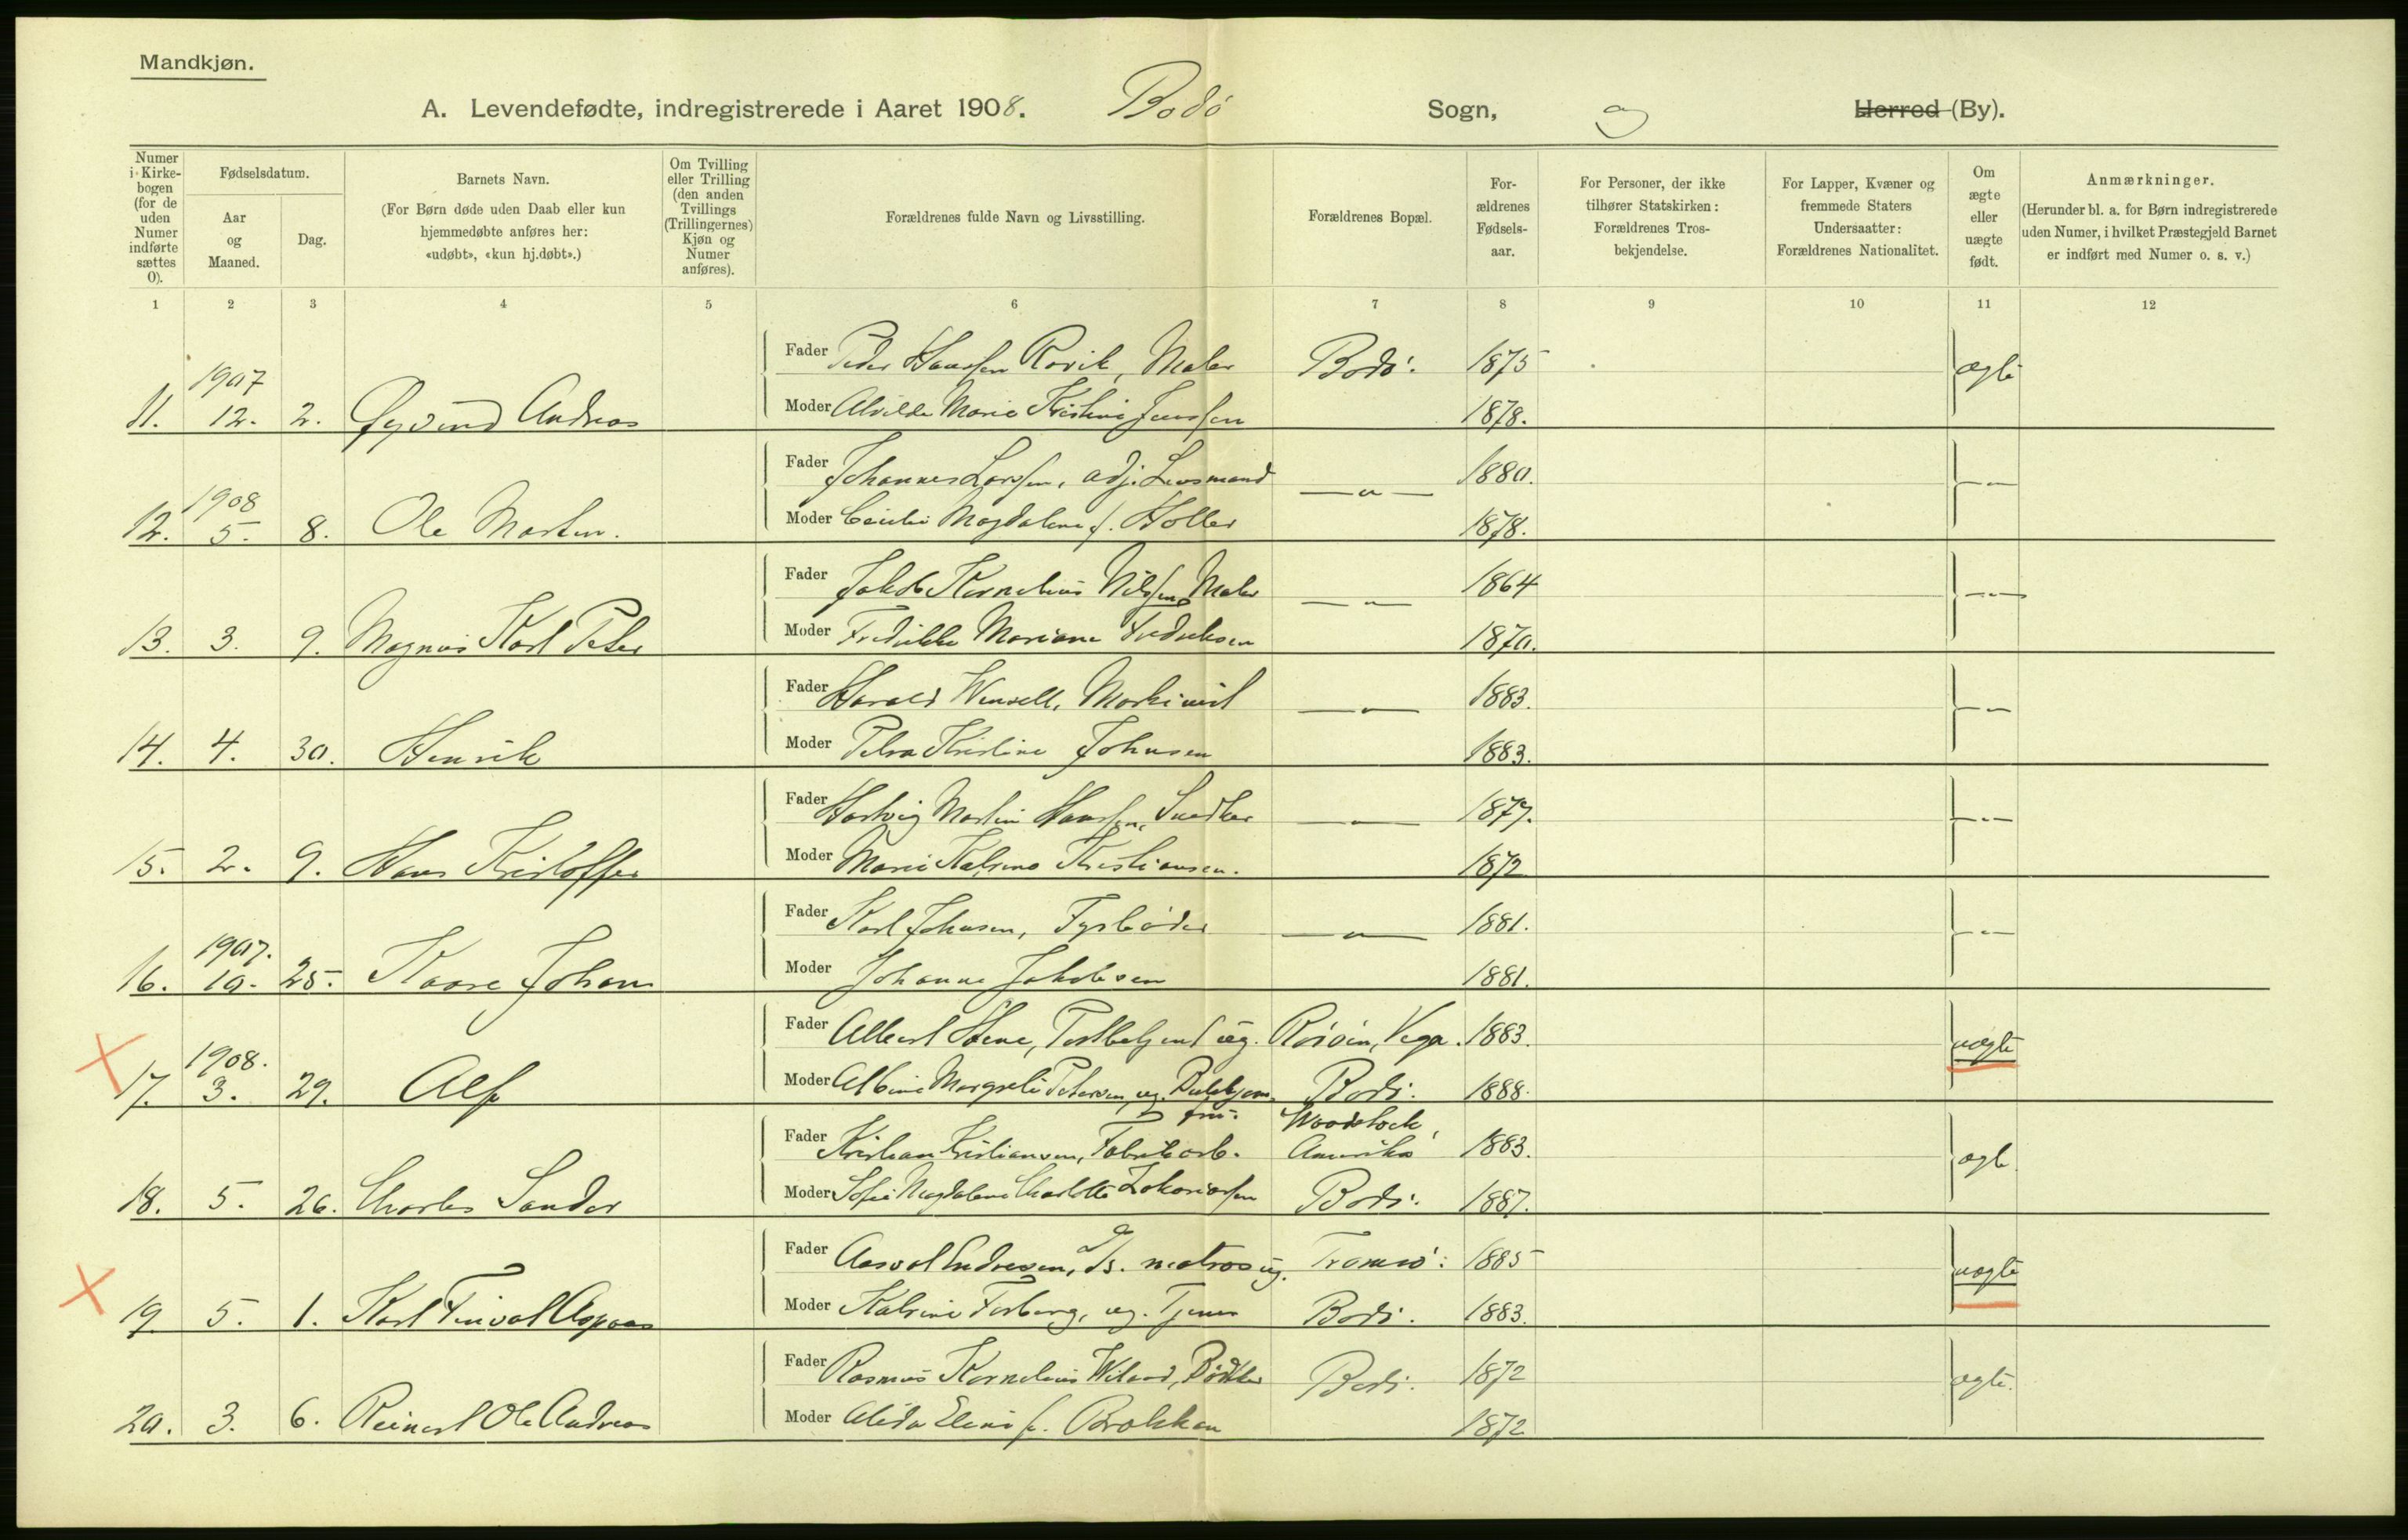 Mandkjøn.
A. Levendefødte, indregistrerede i Aaret 1908. Bodø Sogn, og Herred (By).
Numer i Kirke-bogen (for de uden Numer indførte sættes 0).
Fødselsdatum.
Aar og Maaned.
Dag.
Barnets Navn.
(For Børn døde uden Daab eller kun hjemmedøbte anføres her: «udøbt», «kun hj.døbt».)
Om Tvilling eller Trilling (den anden Tvillings (Trillingernes) Kjøn og Numer anføres).
Forældrenes fulde Navn og Livsstilling.
Forældrenes Bopæl.
For-ældrenes Fødsels-aar.
For Personer, der ikke tilhører Statskirken: Forældrenes Tros-bekjendelse.
For Lapper, Kvæner og fremmede Staters Undersaatter: Forældrenes Nationalitet.
Om ægte eller uægte født.
Anmærkninger.
(Herunder bl. a. for Børn indregistrerede uden Numer, i hvilket Præstegjeld Barnet er indført med Numer o. s. v.)
1 2 3 4 5 6 7 8 9 10 11 12
1907
Fader Peder Hanssen Rovik, Maler Bodø. 1875 ægte
11. 12. 2. Øyvind Andreas Moder Alvilde Marie Kristine Jenssen 1878.
1908
Fader Johannes Larssen, adj. Lensmand —"— 1880. —"—
12. 5. 8. Ole Morten. Moder Cecilie Magdalena f. Holler 1878.
Fader Jakob Kornelius Nilssen, Maler —"— 1864 —"—
13. 3. 9. Magnus Karl Peter Moder Fredrikke Mariane Fredriksen 1870.
Fader Harald Wensell, Maskinist —"— 1883. —"—
14. 4. 30. Henrik Moder Petra Kristine Johnsen 1883.
Fader Hartvig Martin Hanssen, Snedker —"— 1877. —"—
15. 2. 9. Hans Kristoffer Moder Marie Katrine Kristiansen. 1872
1907.
Fader Karl Johnsen, Fyrbøder —"— 1881. —"—
16. 10. 25. Kaare Johan Moder Johanne Jakobsen 1881.
1908.
Fader Albert Stene, Postbetjent ug. Rørøen, Vega. 1883. uægte
17. 3. 29. Alf Moder Albine Margrete Petersen, ug. Bodø. 1888.
Woodstock,
Fader Kristian Kristiansen, Fabrikarb. Amerika 1883. ægte
18. 5. 26. Charles Sander Moder Sofie Magdalene Charlotte Zakariassen Bodø. 1887.
Fader Aasvol Endresen, ds. matros ug. Tromsø. 1885 uægte
19. 5. 1. Karl Finvol Aspaas Moder Katrine Forberg, ug. Tjener Bodø. 1883.
Fader Rasmus Kornelius Wiland, Bødker Bodø. 1872 ægte.
20. 3. 6. Reinert Ole Andreas Moder Alida Elene f. Brokken 1872